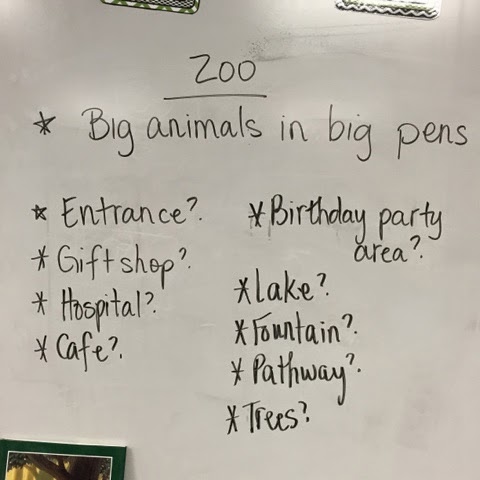 Zoo
* Big animals in big pens
* Entrance?
* Gift shop?
* Hospital?
* Cafe?
* Birthday party
area?
* Lake?
* Fountain?
* Pathway?
* Trees?